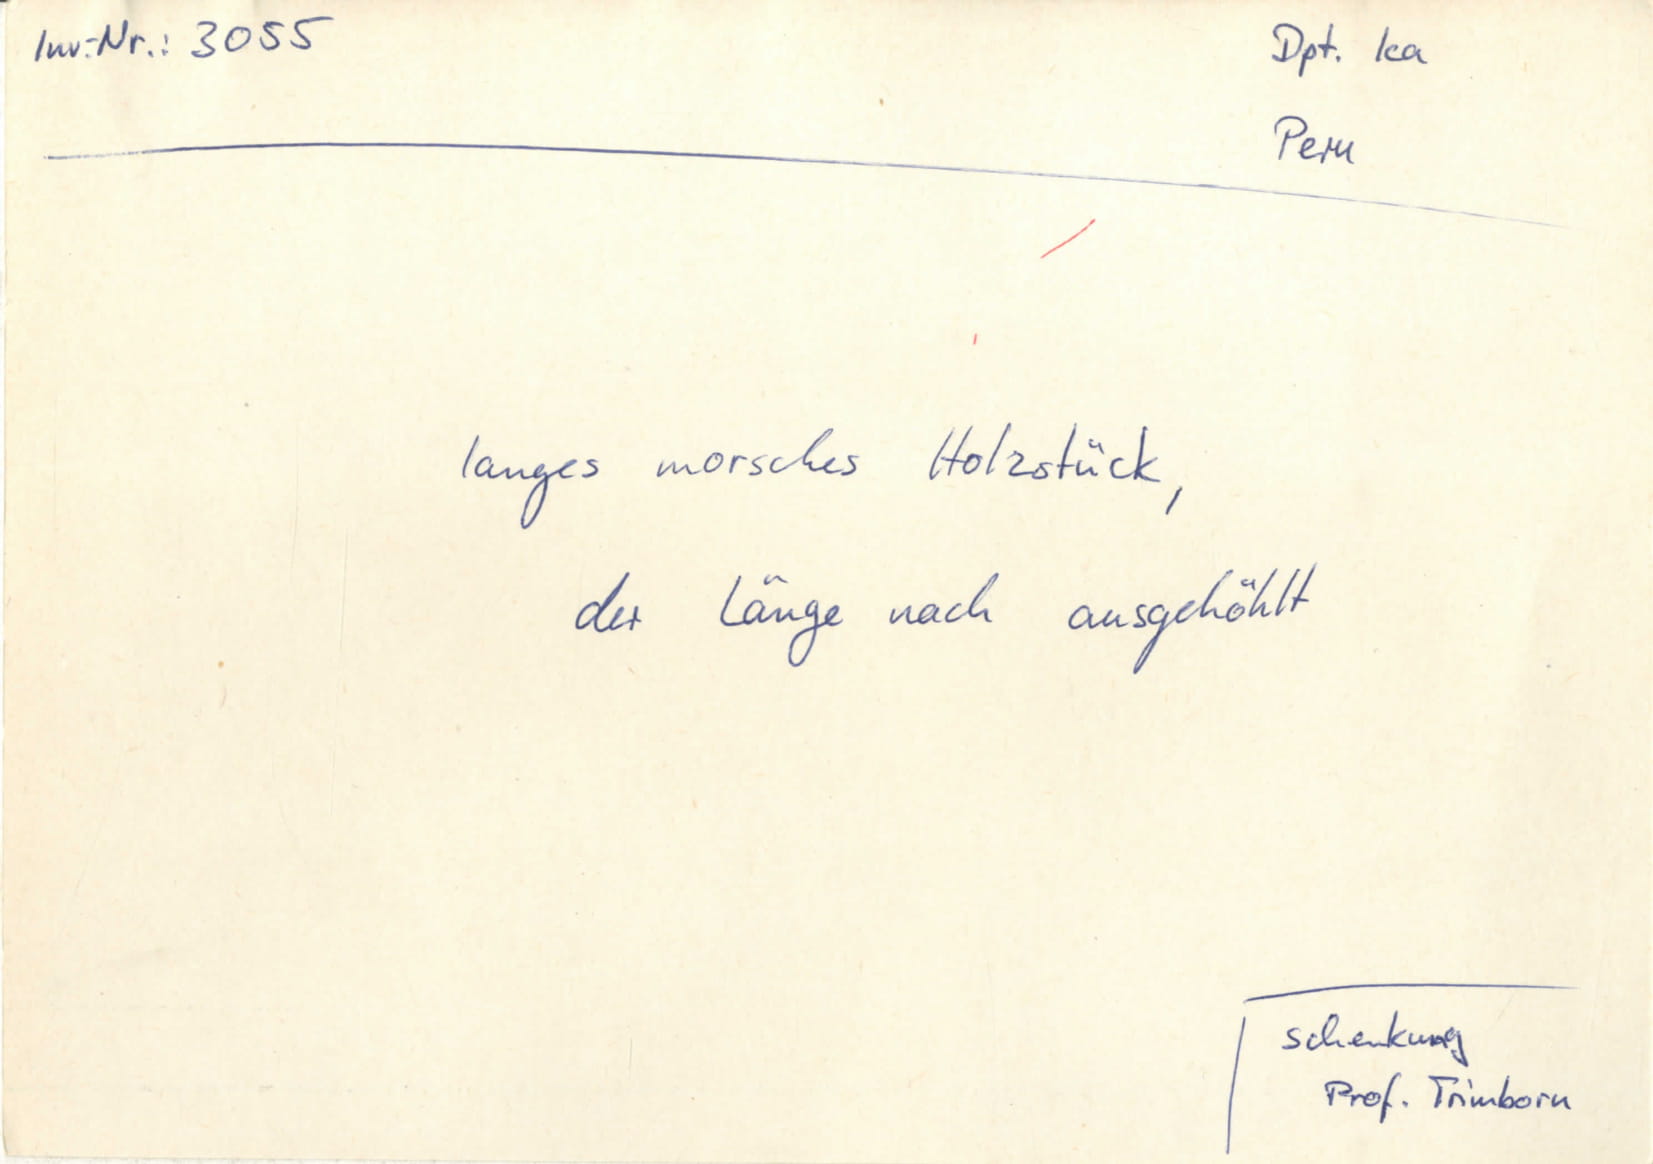 Inv.-Nr.: 3055
Dpt. Ica
Peru
langes morsches Holzstück,
der Länge nach ausgehöhlt
Schenkung
Prof. Trimborn